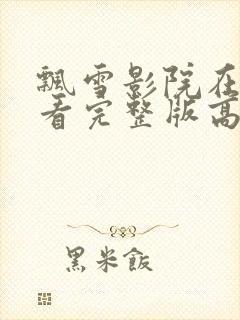 飄雪影院在
看完整版高
黑米飯